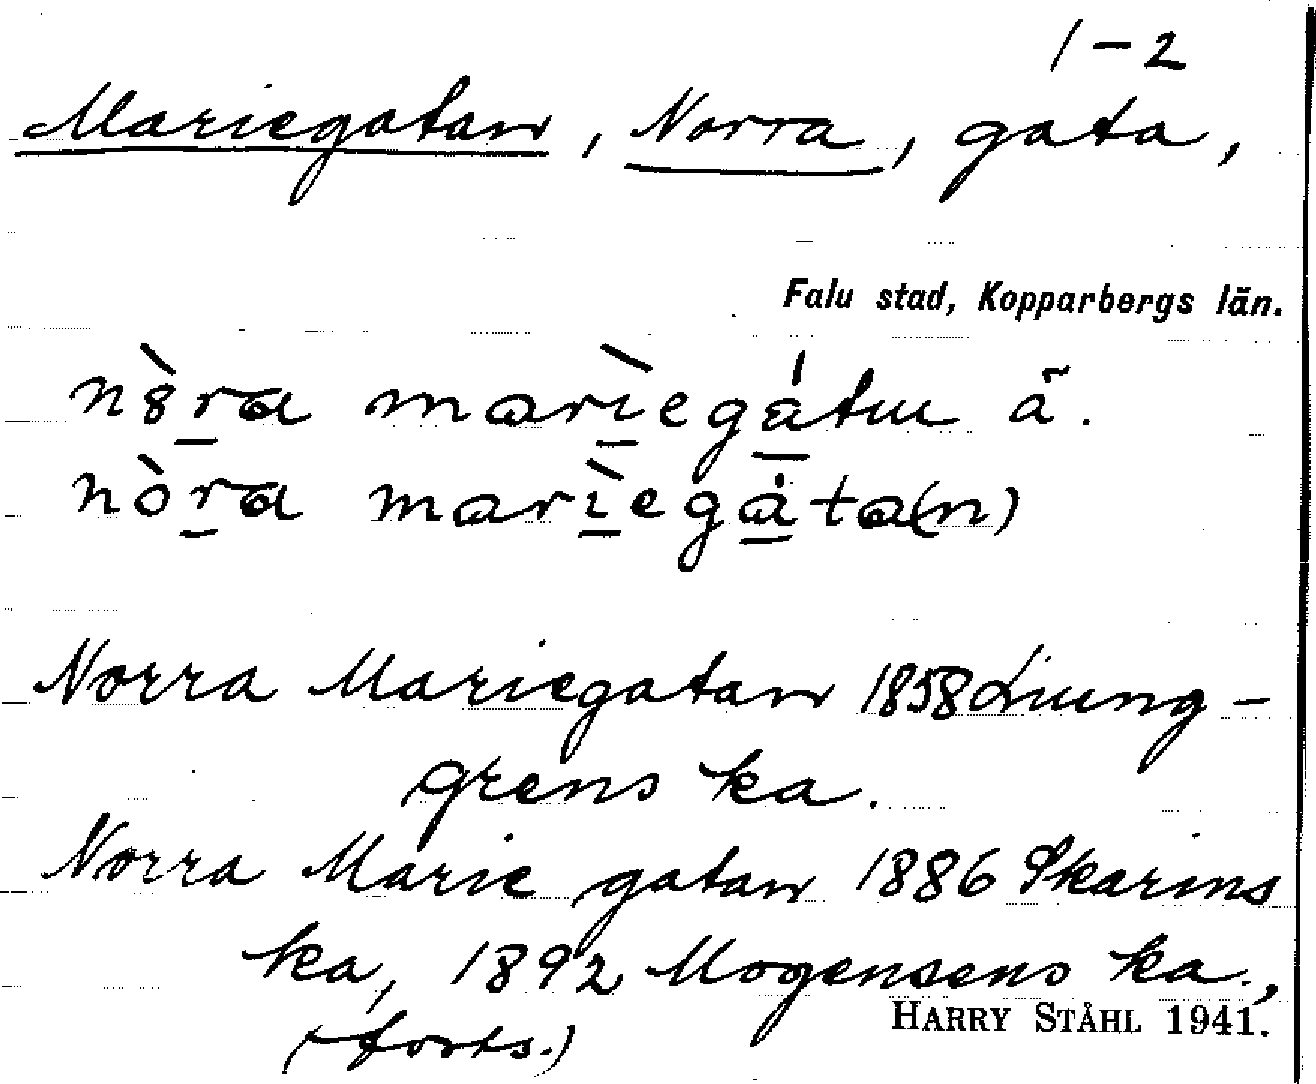 1-2
Mariegatan, Norra, gata,
Falu stad, Kopparbergs län.
nòra marìegátuu ä.
nòra marìegàta(n)
Norra Mariegatan 1858 Liung-
grens ka.
Norra Marie gatan 1886 Skarins
ka, 1892 Mogensens ka.,
(forts.)
HARRY STÅHL 1941.